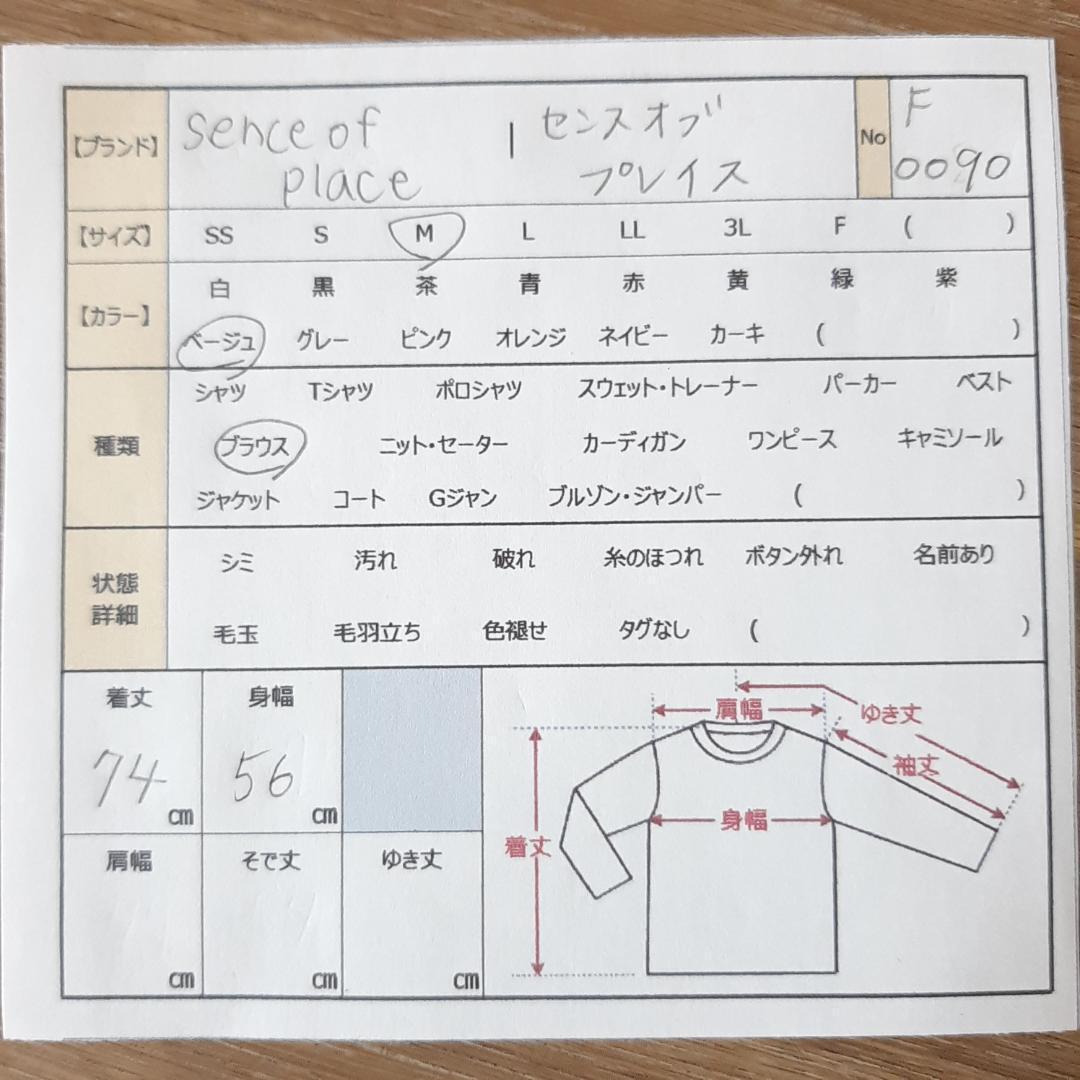 【ブランド】 sence of | センスオブ No F
place プレイス 0090
【サイズ】 SS S M L LL 3L F ( )
【カラー】 白 黒 茶 青 赤 黄 緑 紫
ベージュ グレー ピンク オレンジ ネイビー カーキ ( )
種類 シャツ Tシャツ ポロシャツ スウェット・トレーナー パーカー ベスト
ブラウス ニット・セーター カーディガン ワンピース キャミソール
ジャケット コート Gジャン ブルゾン・ジャンパー ( )
状態
詳細
シミ 汚れ 破れ 糸のほつれ ボタン外れ 名前あり
毛玉 毛羽立ち 色褪せ タグなし ( )
着丈 身幅
74 cm 56 cm
肩幅 そで丈 ゆき丈
cm cm cm
肩幅 ゆき丈
袖丈
着丈 身幅